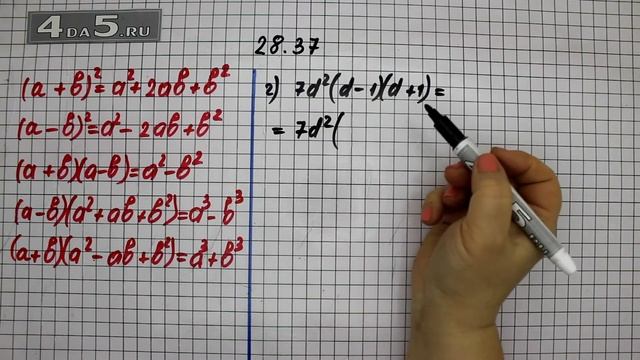 4 DA 5.RU
28.37
(a + b)² = a² + 2ab + b²
(a - b)² = a² - 2ab + b²
(a + b)(a - b) = a² - b²
(a - b)(a² + ab + b²) = a³ - b³
(a + b)(a² - ab + b²) = a³ + b³
г) 7d²(d - 1)(d + 1) =
= 7d²(